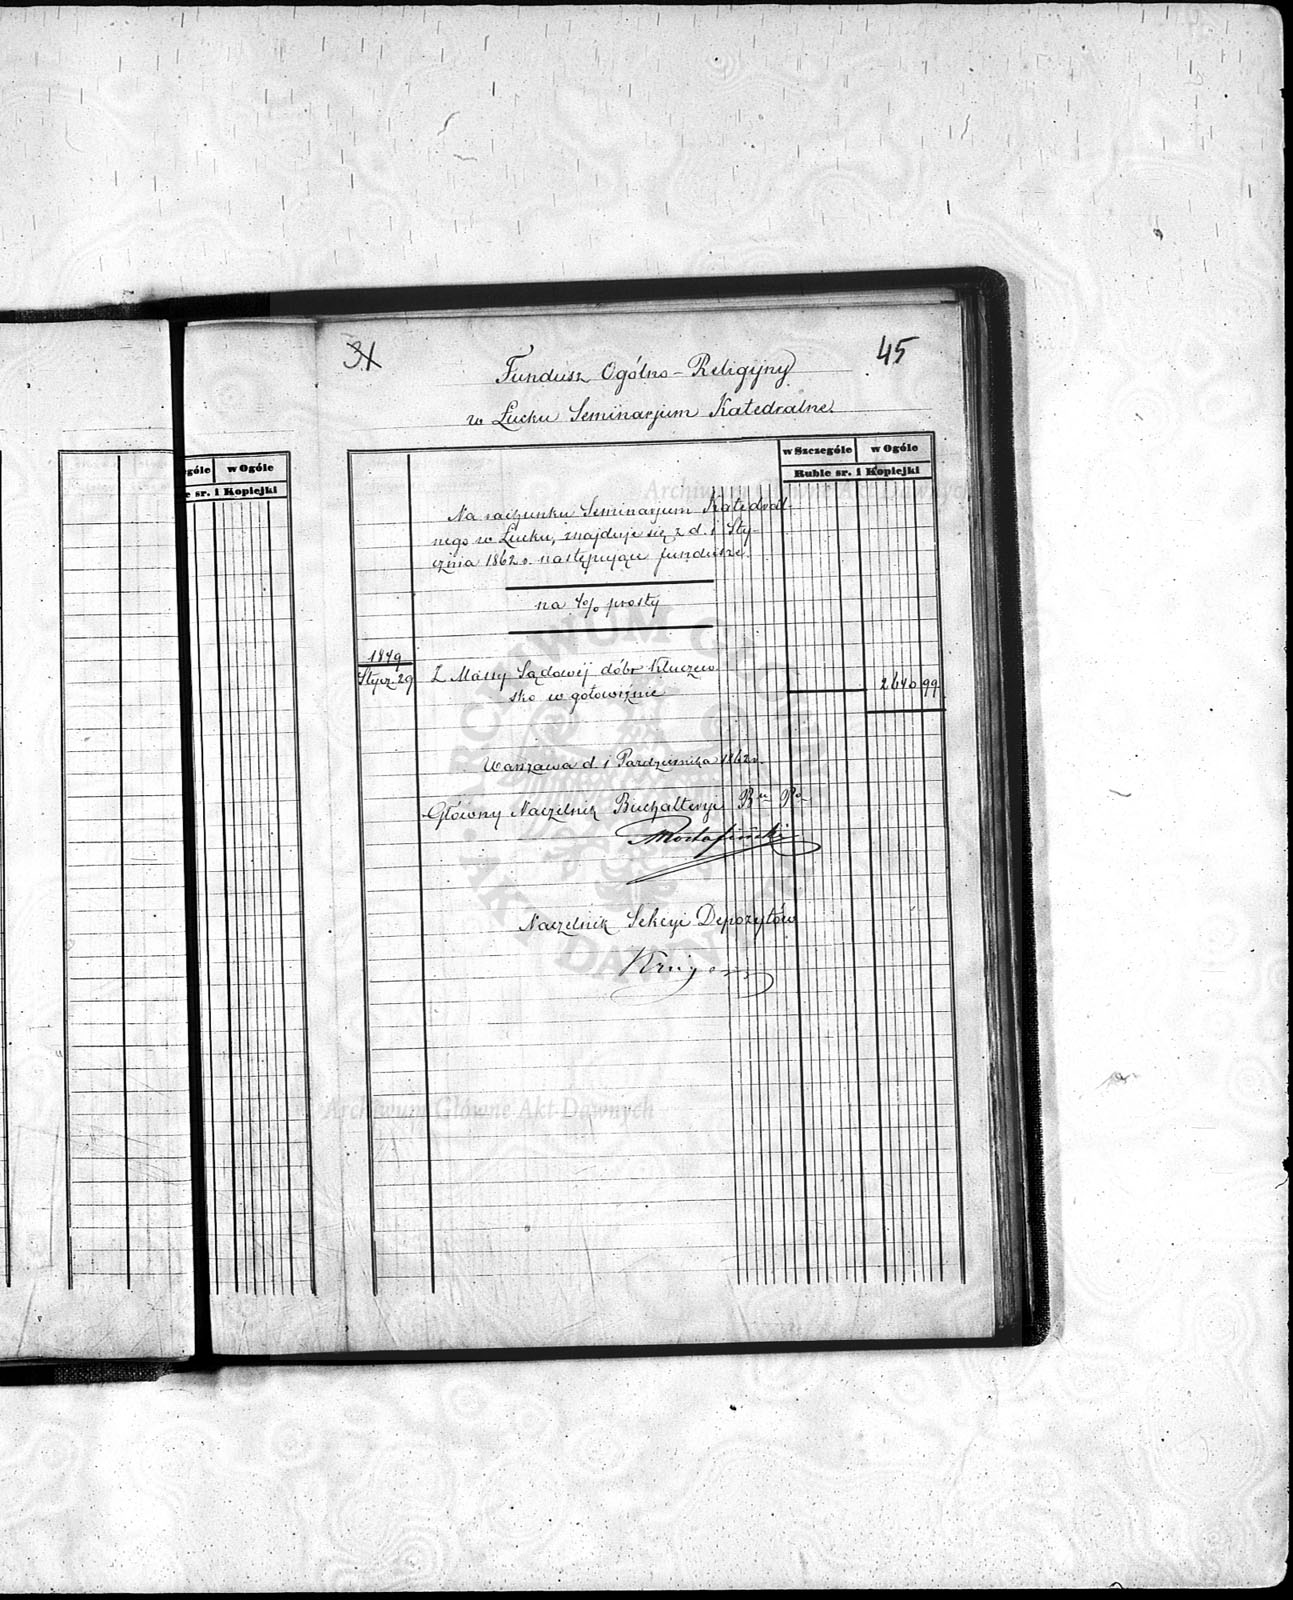 31
45
Fundusz Ogólno-Religijny
w Łucku Seminarjum Katedralne.
ególe w Ogóle
e sr. i Kopiejki
w Szczególe w Ogóle
Ruble sr. i Kopiejki
Archiwum Główne Akt Dawnych
Na rachunku Seminarjum Katedral-
nego w Łucku, znajduje się z d. 1 Sty-
cznia 1862 r. następujące fundusze.
na 4% prosty
1849
Stycz. 29 Z Massy Sądowej dóbr Kluczew
sko w gotowiznie 2640 99
Warszawa d 1 Października 1862 r.
Główny Naczelnik Buchalteryi
Naczelnik Sekcyi Depozytów
Krüger
ARCHIWUM GŁÓWNE AKT DAWNYCH
Archiwum Główne Akt Dawnych